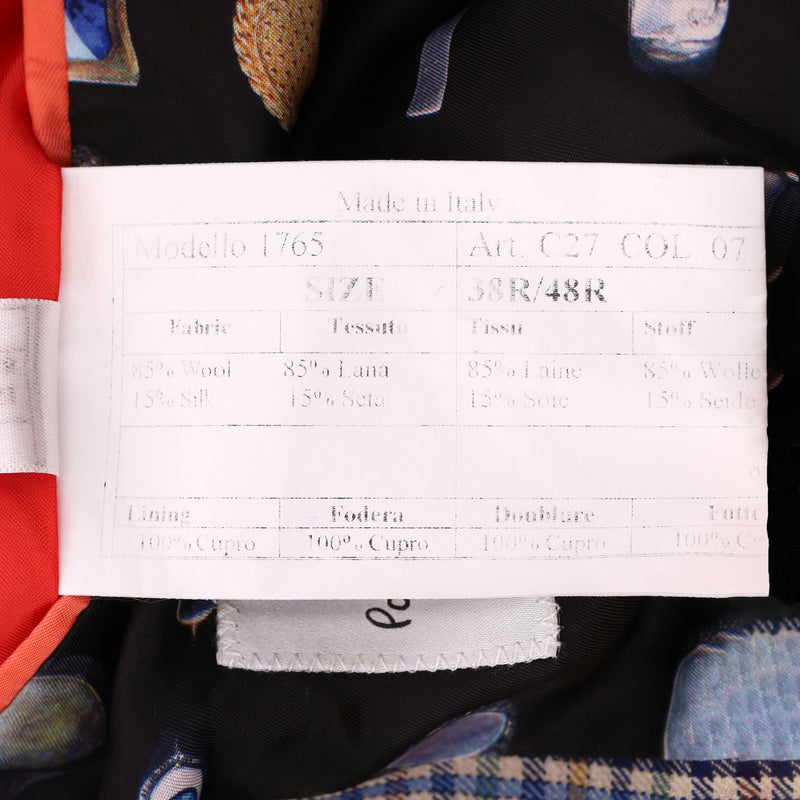 Made in Italy
Modello 1765 Art. C27 COL. 07
SIZE 38R/48R
Fabric Tessuto Tissu Stoff
85% Wool 85% Lana 85% Laine 85% Wolle
15% Silk 15% Seta 15% Soie 15% Seide
Lining Fodera Doublure Futte
100% Cupro 100% Cupro 100% Cupro 100% C